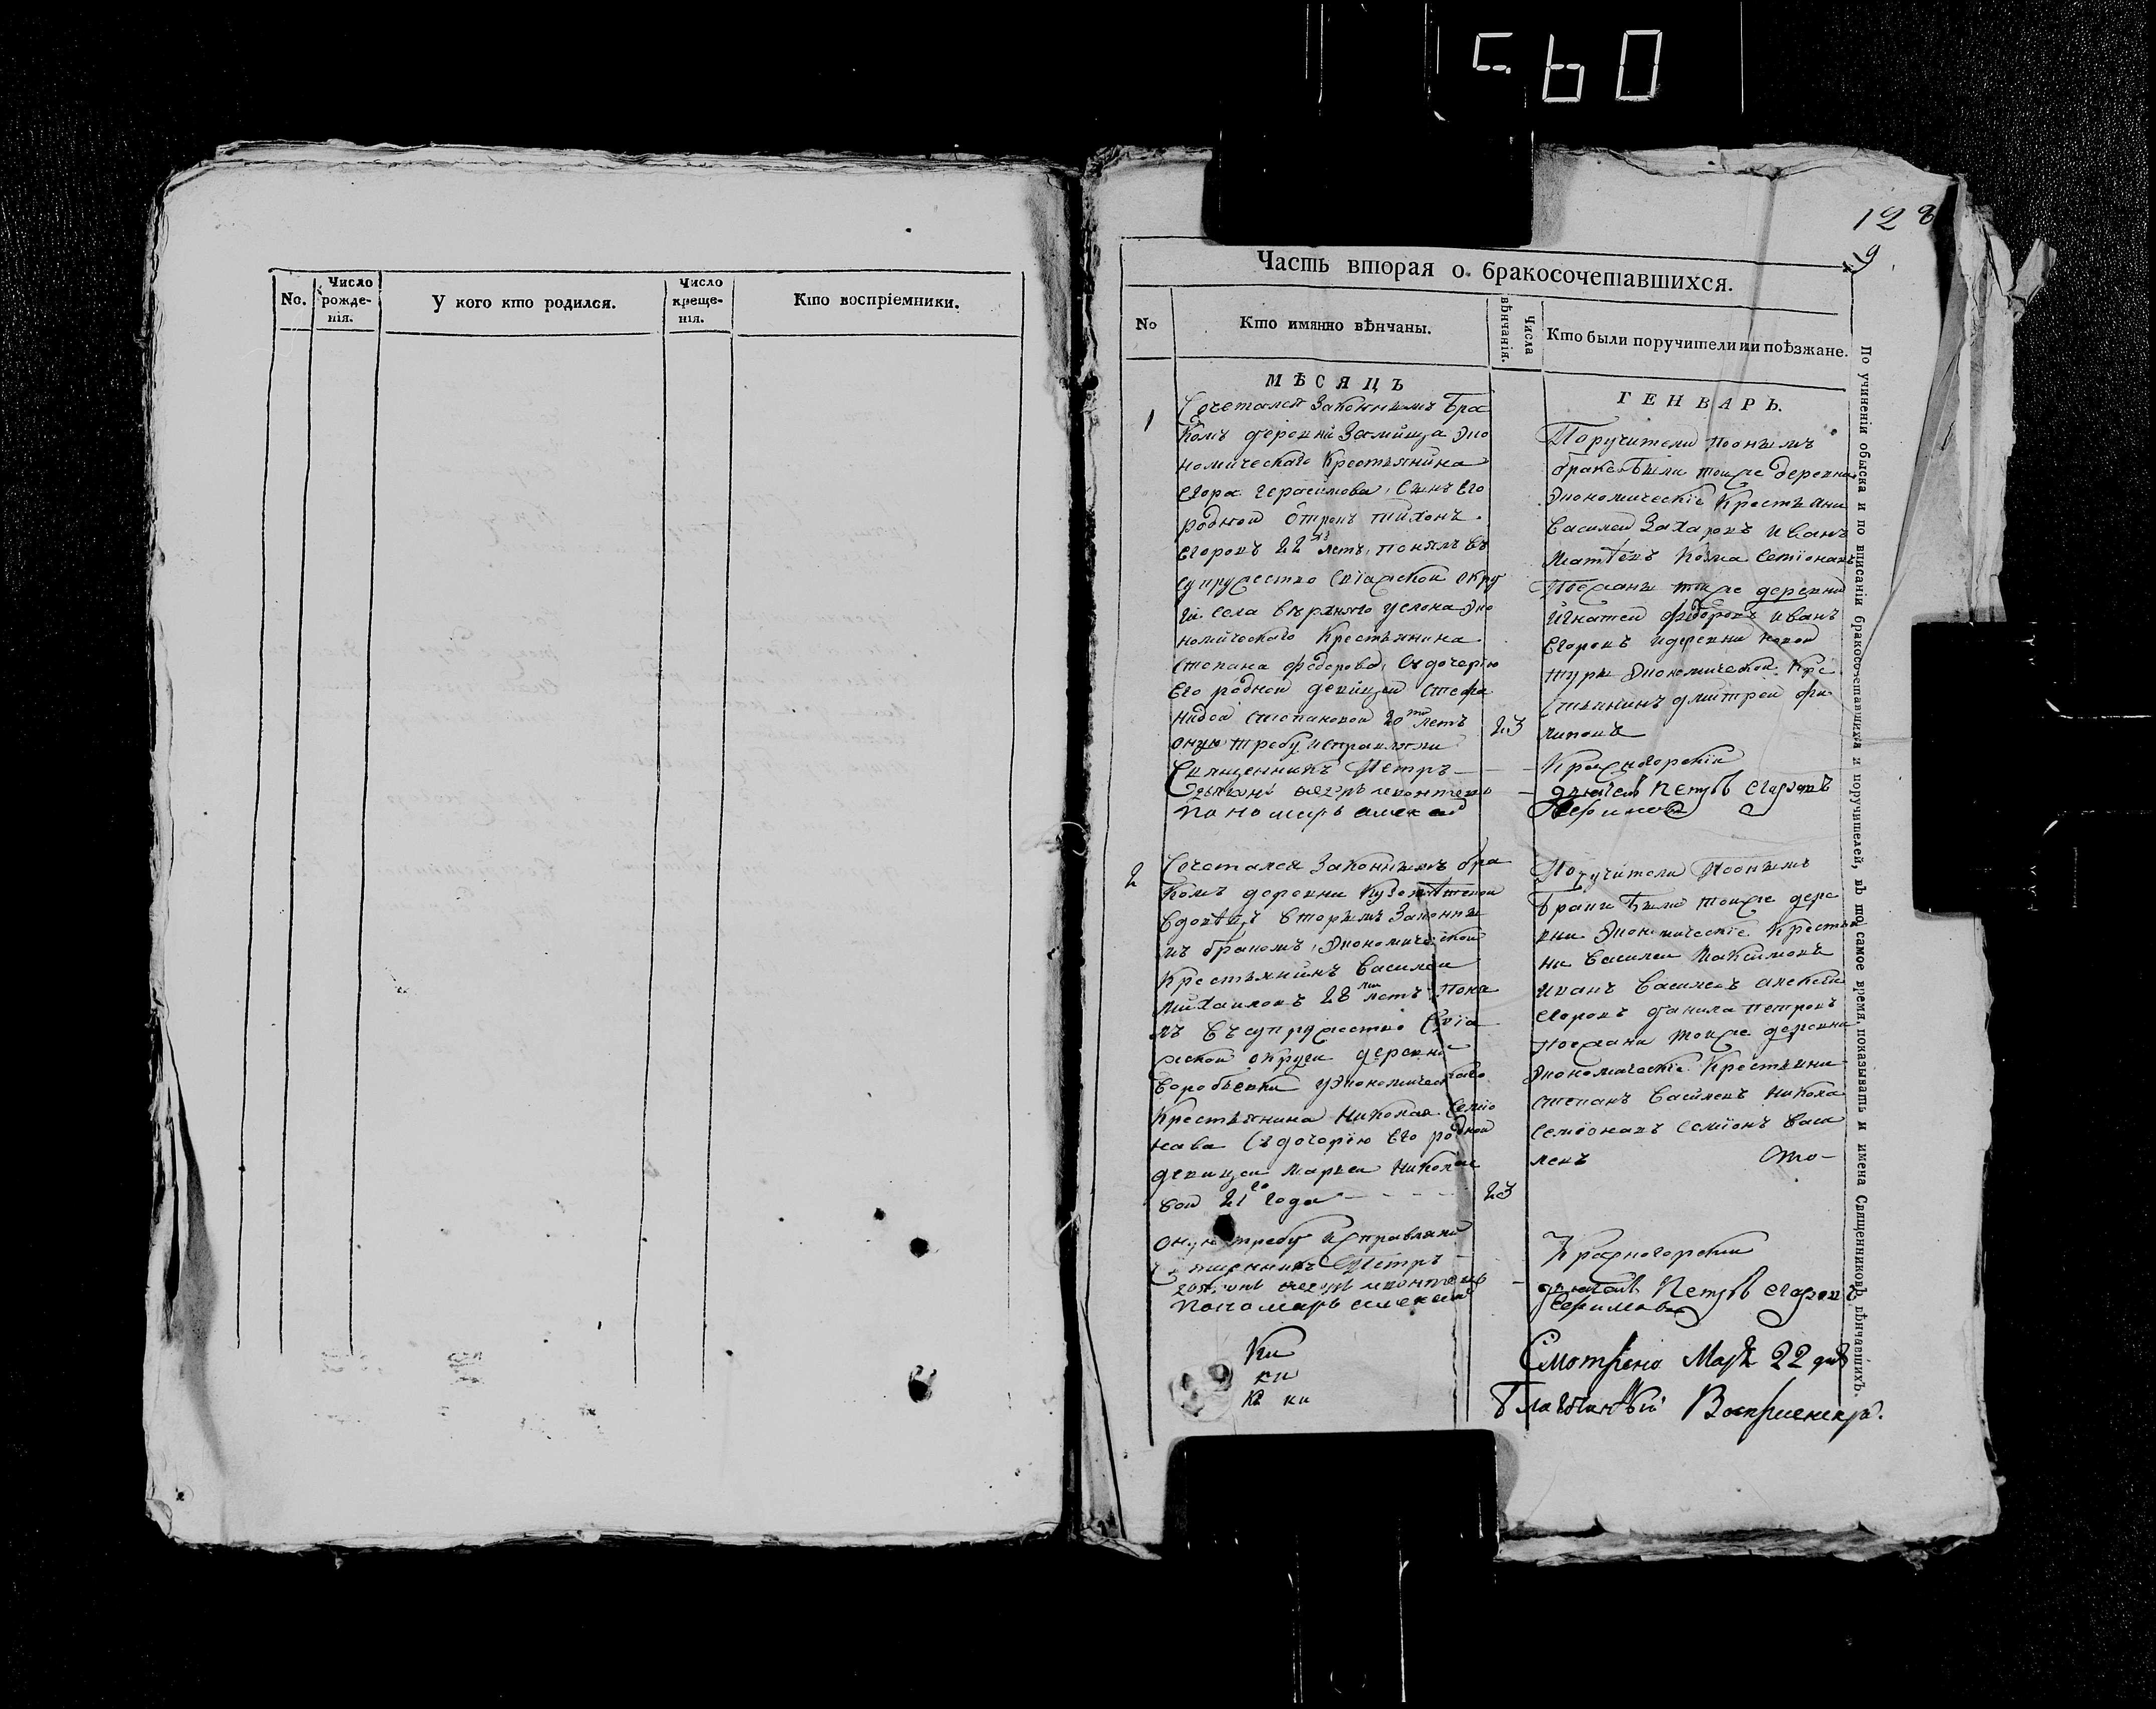 560
No.
Число рожде-
нія.
У кого кто родился.
Число креще-
нія.
Кто воспріемники.
128
9
Часть вторая о бракосочетавшихся.
No
Кто имянно вѣнчаны.
Числа вѣнчанія.
Кто были поручители или поѣзжане.
МѢСЯЦЪ
ГЕНВАРЬ.
1
Сочетался Законнымъ Бра
комъ деревни Займища Эко
номическаго Крестьянина
Егора Герасимова, Сынъ Его
родной Отрокъ Тихонъ
Егоровъ 22 летъ, понялъ въ
супружество Свіажской Окру
ги села Верхняго Услона Эко
номическаго Крестьянина
Степана Федорова, Съ дочерію
Его родной девицей Стефа
нидой Степановой 20 летъ
23
оную требу исправляли
Священникъ Петръ
Пономарь Алексей
Поручители поонымъ
браке были тойже деревни
Экономическіе Крестьяни
Василей Захаровъ Иванъ
Матвевъ Козма Семіоновъ
Поезжаны тояже деревни
Игнатей Федоровъ Иванъ
Егоровъ идеревни Новой
туры Экономической Кре
стьянинъ Дмитрей Фи
липовъ
Красногорскій
дьячекъ Петръ Егоровъ
2
Сочетался Законнымъ бра
комъ деревни
Вдовецъ вторымъ Законны
мъ бракомъ, Экономической
Крестьянинъ Василей
Михаиловъ 28 летъ, Поня
лъ Въсупружество Свіа
жской округи деревни
Воробьевки уЭкономическаго
Крестьянина Николая Семіо
нава Съ дочерію Его родной
девицей Марьей Николае
вой 21 года
23
оную требу Исправляли
Священникъ Петръ
Пономарь Алексей
Поручители Поонымъ
Браки были тойже дере
вни Экономическіе Крестья
не Василей Максимовъ
Иванъ Васильевъ Алексей
Егоровъ Данила Петровъ
поезжани тойже деревни
Экономическіе Крестьяни
Степанъ Васильевъ Никола
Семіоновъ Семіонъ Васи
левъ
Красногорскій
дьячекъ Петръ Егоровъ
Ки
ки
Смотрено Мар. 22 дня
Благочинный
По учиненіи обыска и по вписаніи бракосочетавшихся и поручителей, въ то самое время, показывать и имена Священниковъ вѣнчавшихъ.